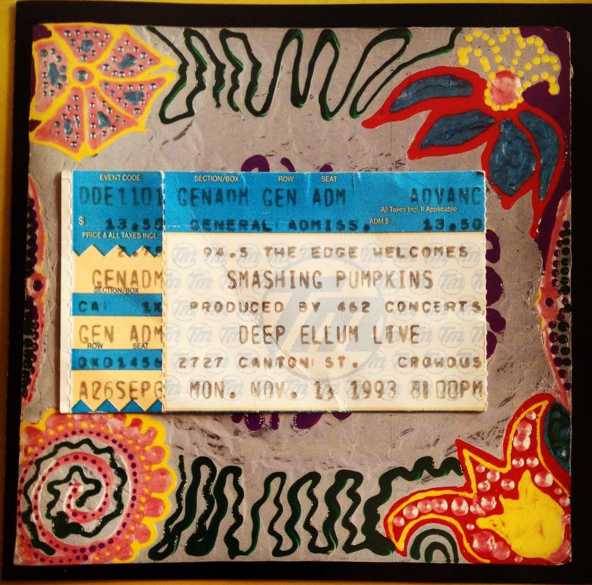 EVENT CODE SECTION/BOX ROW SEAT
DDE1101 GENADM GEN ADM ADVANC
All Taxes Incl. If Applicable
$ 13.50 GENERAL ADMISS. ADM $ 13.50
PRICE & ALL TAXES INCL.
94.5 THE EDGE WELCOMES
GENADM SMASHING PUMPKINS
SECTION/BOX
CA 1X PRODUCED BY 462 CONCERTS
GEN ADM DEEP ELLUM LIVE
ROW SEAT
2727 CANTON ST. CROWDUS
A26SEP3 MON. NOV. 1, 1993 8:00PM